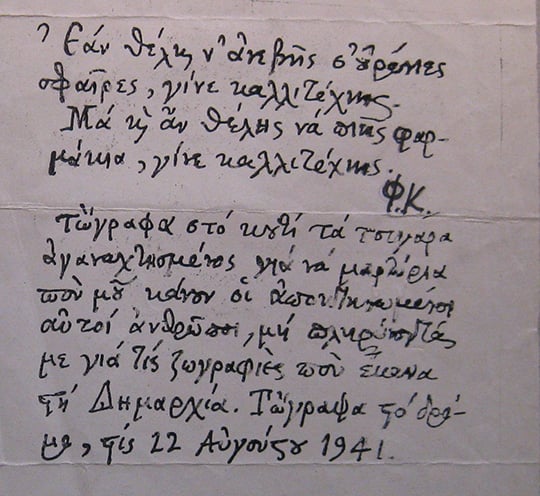 Ἐάν θέλῃς ν' ἀνεβῇς σ' οὐράνιες
σφαῖρες, γίνε καλλιτέχνης.
Μά κι ἄν θέλῃς νά πιῇς φαρ-
μάκια, γίνε καλλιτέχνης.
Φ.Κ.
Τὤγραψα στό κουτί τά τσιγάρα
ἀγαναχτισμένος γιά νά μαρτύρια
ποὺ μοῦ κάνουν οἱ
αὐτοί ἀνθρῶποι, μή πληρώνοντάς
με γιά τίς ζωγραφιὲς ποὺ ἔκανα
στή Δημαρχία. Τὤγραψα τό
τίς 22 Αὐγούστου 1941.